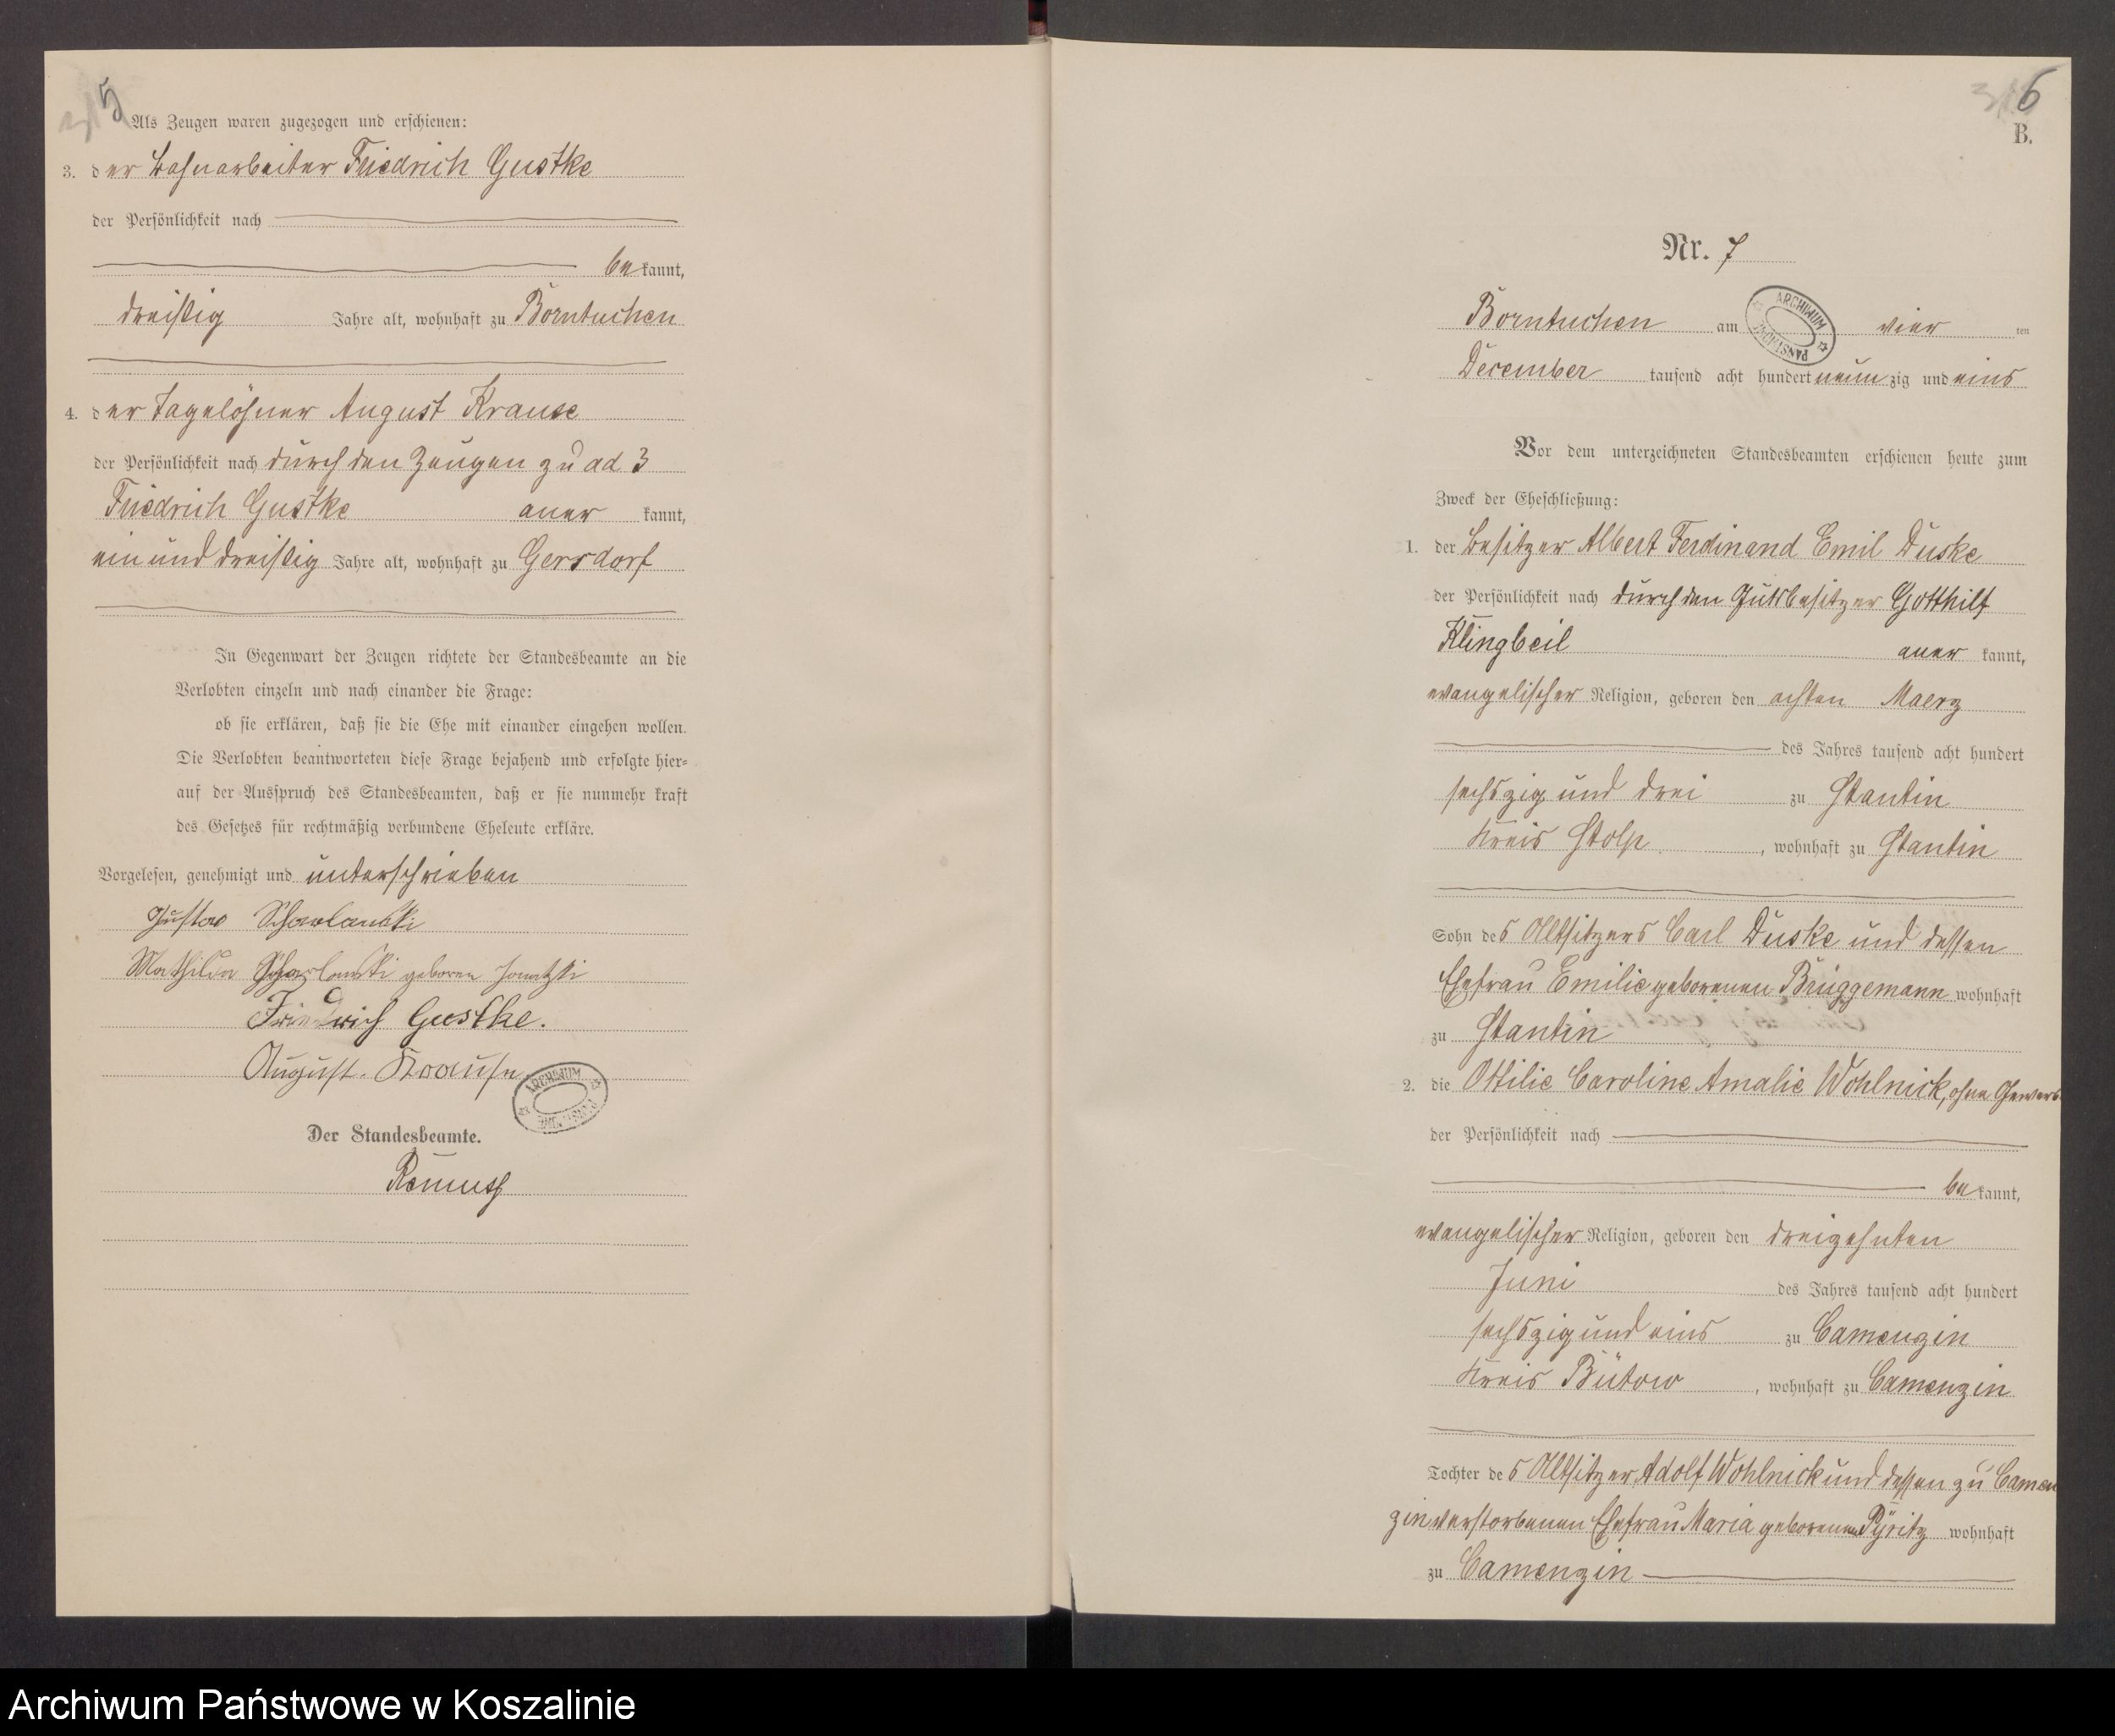 5
Als Zeugen waren zugezogen und erschienen:
3. der Bahnarbeiter Friedrich Gustke
der Persönlichkeit nach
bekannt,
dreißig Jahre alt, wohnhaft zu Borntuchen
4. der Tagelöhner August Krause
der Persönlichkeit nach durch den Zeugen zu ad 3
Friedrich Gustke anerkannt,
ein und dreißig Jahre alt, wohnhaft zu Gersdorf
In Gegenwart der Zeugen richtete der Standesbeamte an die
Verlobten einzeln und nach einander die Frage:
ob sie erklären, daß sie die Ehe mit einander eingehen wollen.
Die Verlobten beantworteten diese Frage bejahend und erfolgte hier=
auf der Ausspruch des Standesbeamten, daß er sie nunmehr kraft
des Gesetzes für rechtmäßig verbundene Eheleute erkläre.
Vorgelesen, genehmigt und unterschrieben
Gustav
Mathilda geboren
Friedrich Gustke.
August Krause
ARCHIWUM
Der Standesbeamte.
6
B.
Nr. 7
Borntuchen am vier ten
ARCHIWUM PAŃSTWOWE
December tausend acht hundert neunzig und eins
Vor dem unterzeichneten Standesbeamten erschienen heute zum
Zweck der Eheschließung:
1. der Besitzer Albert Ferdinand Emil Duske
der Persönlichkeit nach durch den Gutsbesitzer Gotthilf
Klingbeil anerkannt,
evangelischer Religion, geboren den achten Maerz
des Jahres tausend acht hundert
sechszig und drei zu Stantin
Kreis Stolp, wohnhaft zu Stantin
Sohn des Altsitzers Carl Duske und dessen
Ehefrau Emilie geborenen Brüggemann wohnhaft
zu Stantin
2. die Ottilie Caroline Amalie Wohlnick, ohne Gewerb
der Persönlichkeit nach
bekannt,
evangelischer Religion, geboren den dreizehnten
Juni des Jahres tausend acht hundert
sechszig und eins zu Camenzin
Kreis Bütow, wohnhaft zu Camenzin
Tochter des Altsitzer Adolf Wohlnick und dessen zu Camen
zin verstorbenen Ehefrau Maria geborenen Pyritz wohnhaft
zu Camenzin
Archiwum Państwowe w Koszalinie